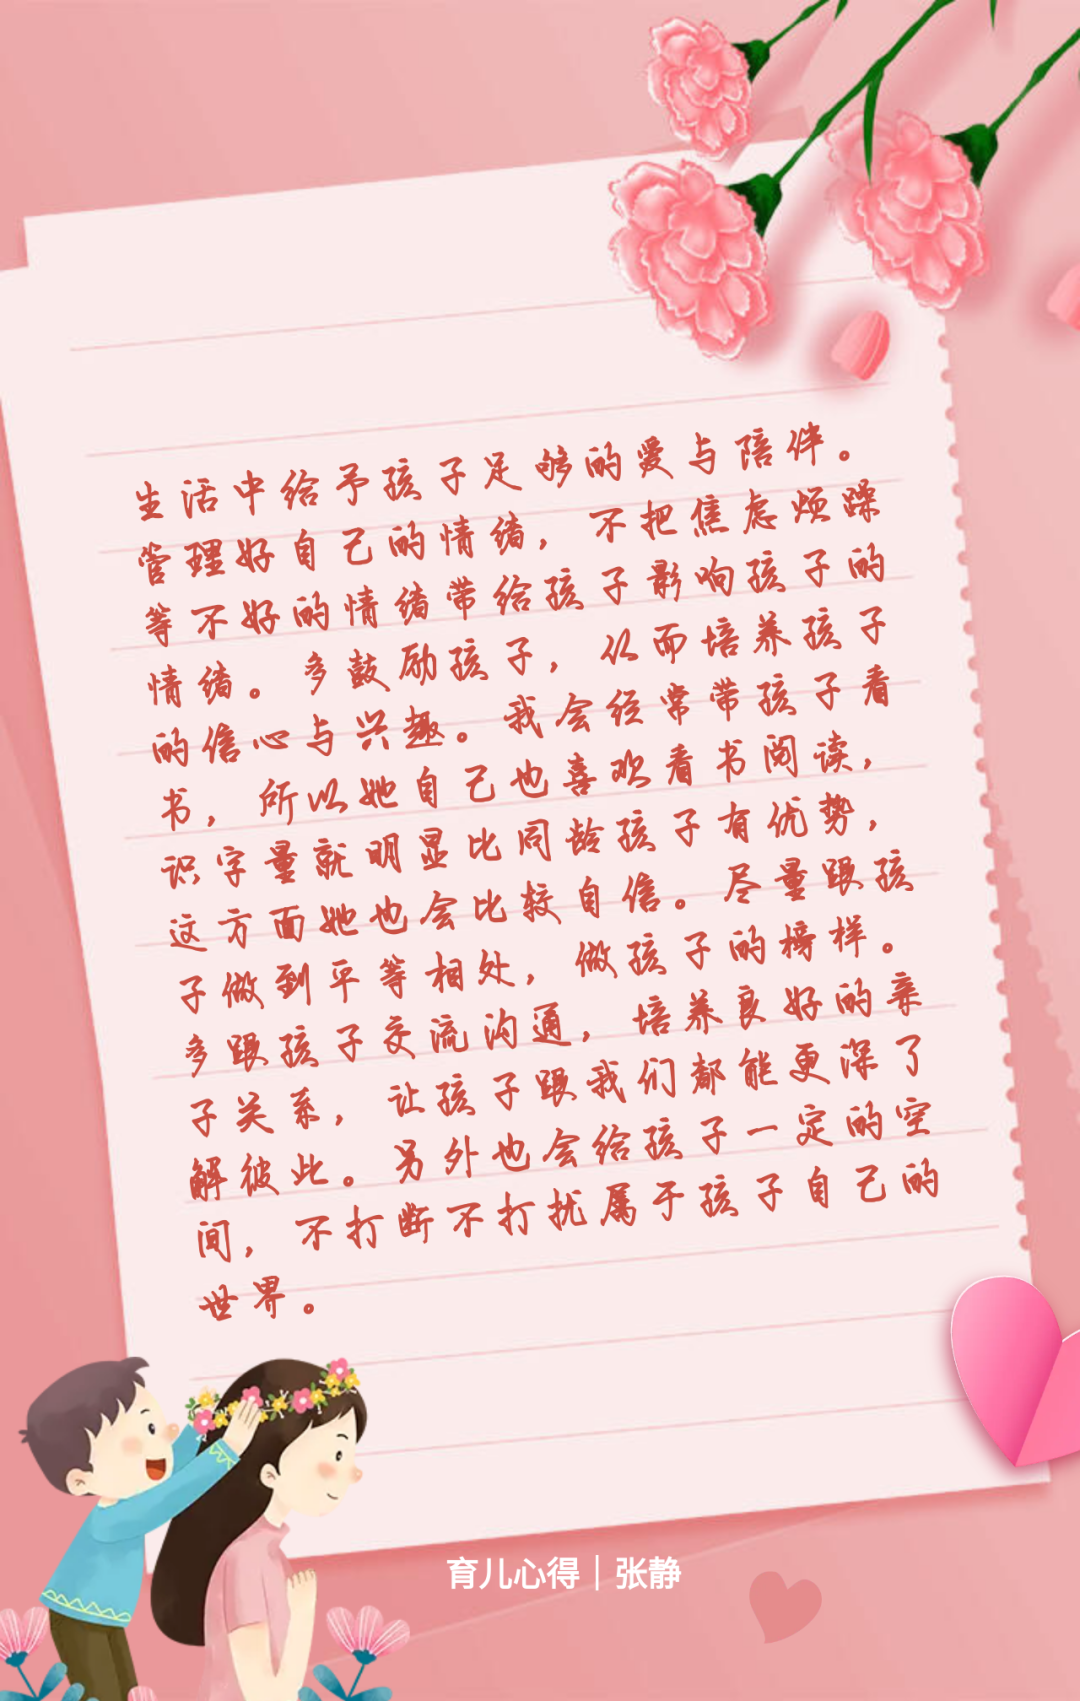 生活中给予孩子足够的爱与陪伴。
管理好自己的情绪，不把焦虑烦躁
等不好的情绪带给孩子影响孩子的
情绪。多鼓励孩子，从而培养孩子
的信心与兴趣。我会经常带孩子看
书，所以她自己也喜欢看书阅读，
识字量就明显比同龄孩子有优势，
这方面她也会比较自信。尽量跟孩
子做到平等相处，做孩子的榜样。
多跟孩子交流沟通，培养良好的亲
子关系，让孩子跟我们都能更深了
解彼此。另外也会给孩子一定的空
间，不打断不打扰属于孩子自己的
世界。
育儿心得｜张静